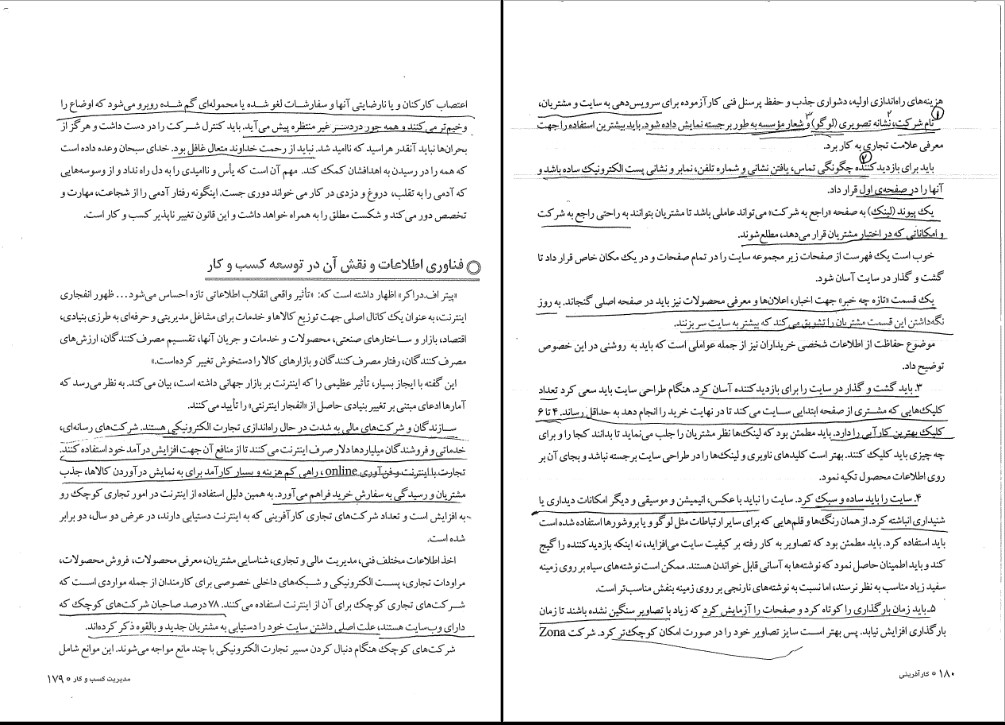 اعتصاب کارکنان و یا نارضایتی آنها و سفارشات لغو شده یا محموله‌ای گم شده روبرو می‌شود که اوضاع را
وخیم‌تر می‌کنند و همه جور دردسر غیر منتظره پیش می‌آید. باید کنترل شرکت را در دست داشت و هرگز از
بحران‌ها نباید آنقدر هراسید که ناامید شد. نباید از رحمت خداوند متعال غافل بود. خدای سبحان وعده داده است
که همه را در رسیدن به اهدافشان کمک کند. مهم آن است که یأس و ناامیدی را به دل راه نداد و از وسوسه‌هایی
که آدمی را به تقلب، دروغ و دزدی در کار می خواند دوری جست. اینگونه رفتار آدمی را از شجاعت، مهارت و
تخصص دور می‌کند و شکست مطلق را به همراه خواهد داشت و این قانون تغییر ناپذیر کسب و کار است.
فناوری اطلاعات و نقش آن در توسعه کسب و کار
«پیتر اف.دراکر» اظهار داشته است که: «تأثیر واقعی انقلاب اطلاعاتی تازه احساس می‌شود... ظهور انفجاری
اینترنت، به عنوان یک کانال اصلی جهت توزیع کالاها و خدمات برای مشاغل مدیریتی و حرفه‌ای به طرزی بنیادی،
اقتصاد، بازار و ساختارهای صنعتی، محصولات و خدمات و جریان آنها، تقسیم مصرف کنندگان، ارزش‌های
مصرف کنندگان، رفتار مصرف کنندگان و بازارهای کالا را دستخوش تغییر کرده‌است.»
این گفته با ایجاز بسیار، تأثیر عظیمی را که اینترنت بر بازار جهانی داشته است، بیان می‌کند. به نظر می‌رسد که
آمارها ادعای مبتنی بر تغییر بنیادی حاصل از «انفجار اینترنتی» را تأیید می‌کنند.
سازندگان و شرکت‌های مالی به شدت در حال راه‌اندازی تجارت الکترونیکی هستند. شرکت‌های رسانه‌ای،
خدماتی و فروشندگان میلیاردها دلار صرف اینترنت می‌کنند تا از منافع آن جهت افزایش درآمد خود استفاده کنند.
تجارت با اینترنت و فن‌آوری online، راهی کم هزینه و بسیار کارآمد برای به نمایش درآوردن کالاها، جذب
مشتریان و رسیدگی به سفارش خرید فراهم می‌آورد. به همین دلیل استفاده از اینترنت در امور تجاری کوچک رو
به افزایش است و تعداد شرکت‌های تجاری کارآفرینی که به اینترنت دستیابی دارند، در عرض دو سال، دو برابر
شده است.
اخذ اطلاعات مختلف فنی، مدیریت مالی و تجاری، شناسایی مشتریان، معرفی محصولات، فروش محصولات،
مراودات تجاری، پست الکترونیکی و شبکه‌های داخلی خصوصی برای کارمندان از جمله مواردی است که
شرکت‌های تجاری کوچک برای آن از اینترنت استفاده می‌کنند. ۷۸ درصد صاحبان شرکت‌های کوچک که
دارای وب‌سایت هستند، علت اصلی داشتن سایت خود را دستیابی به مشتریان جدید و بالقوه ذکر کرده‌اند.
شرکت‌های کوچک هنگام دنبال کردن مسیر تجارت الکترونیکی با چند مانع مواجه می‌شوند. این موانع شامل
مدیریت کسب و کار ۱۷۹
هزینه‌های راه‌اندازی اولیه، دشواری جذب و حفظ پرسنل فنی کارآزموده برای سرویس‌دهی به سایت و مشتریان،
۱ ۲ ۳
نام شرکت، نشانه تصویری (لوگو) و شعار مؤسسه به طور برجسته نمایش داده شود. باید بیشترین استفاده را جهت
معرفی علامت تجاری به کار برد.
۲
باید برای بازدید کننده چگونگی تماس، یافتن نشانی و شماره تلفن، نمابر و نشانی پست الکترونیک ساده باشد و
آنها را در صفحه‌ی اول قرار داد.
یک پیوند (لینک) به صفحه «راجع به شرکت» می‌تواند عاملی باشد تا مشتریان بتوانند به راحتی راجع به شرکت
و امکاناتی که در اختیار مشتریان قرار می‌دهد، مطلع شوند.
خوب است یک فهرست از صفحات زیر مجموعه سایت را در تمام صفحات و در یک مکان خاص قرار داد تا
گشت و گذار در سایت آسان شود.
یک قسمت «تازه چه خبر» جهت اخبار، اعلان‌ها و معرفی محصولات نیز باید در صفحه اصلی گنجاند. به روز
نگه‌داشتن این قسمت مشتریان را تشویق می‌کند که بیشتر به سایت سر بزنند.
موضوع حفاظت از اطلاعات شخصی خریداران نیز از جمله عواملی است که باید به روشنی در این خصوص
توضیح داد.
۳. باید گشت و گذار در سایت را برای بازدیدکننده آسان کرد. هنگام طراحی سایت باید سعی کرد تعداد
کلیک‌هایی که مشتری از صفحه ابتدایی سایت می‌کند تا در نهایت خرید را انجام دهد به حداقل رساند. ۴ تا ۶
کلیک بهترین کارآیی را دارد. باید مطمئن بود که لینک‌ها نظر مشتریان را جلب می‌نماید تا بدانند کجا را و برای
چه چیزی باید کلیک کنند. بهتر است کلیدهای ناوبری و لینک‌ها را در طراحی سایت برجسته نباشد و بجای آن بر
روی اطلاعات محصول تکیه نمود.
۴. سایت را باید ساده و سبک کرد. سایت را نباید با عکس، انیمیشن و موسیقی و دیگر امکانات دیداری یا
شنیداری انباشته کرد. از همان رنگ‌ها و قلم‌هایی که برای سایر ارتباطات مثل لوگو و یا بروشورها استفاده شده است
باید استفاده کرد. باید مطمئن بود که تصاویر به کار رفته بر کیفیت سایت می‌افزاید، نه اینکه بازدیدکننده را گیج
کند و باید اطمینان حاصل نمود که نوشته‌ها به آسانی قابل خواندن هستند. ممکن است نوشته‌های سیاه بر روی زمینه
سفید زیاد مناسب به نظر نرسند، اما نسبت به نوشته‌های نارنجی بر روی زمینه بنفش مناسب‌تر است.
۵. باید زمان بارگذاری را کوتاه کرد و صفحات را آزمایش کرد که زیاد با تصاویر سنگین نشده باشند تا زمان
بارگذاری افزایش نیابد. پس بهتر است سایز تصاویر خود را در صورت امکان کوچک‌تر کرد. شرکت Zona
۱۸۰ کارآفرینی